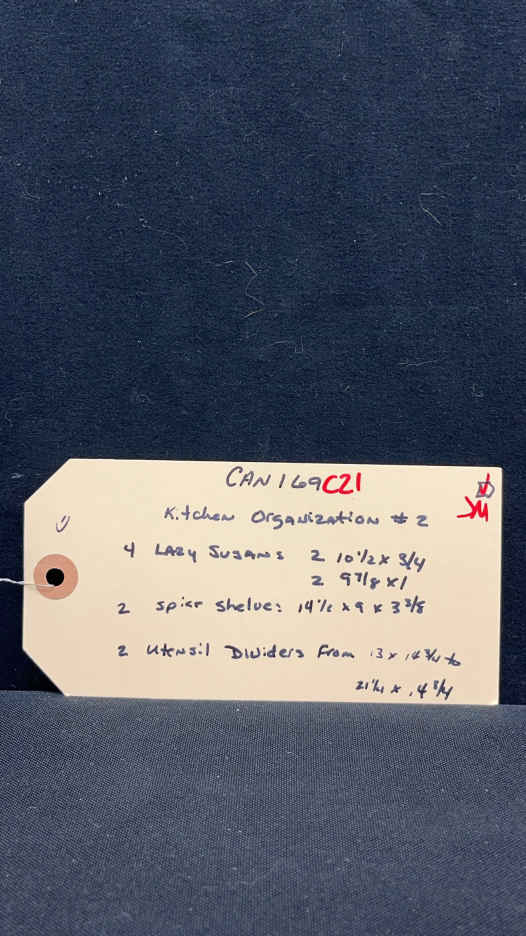 CAN169C21
Kitchen Organization # 2
4 LAZY SUSANS 2 10 1/2 x 3/4
2 9 7/8 x 1
2 spice shelves 14 1/2 x 9 x 3 3/8
2 Utensil Dividers From 13 x 14 3/4 to
21 1/4 x 14 3/4